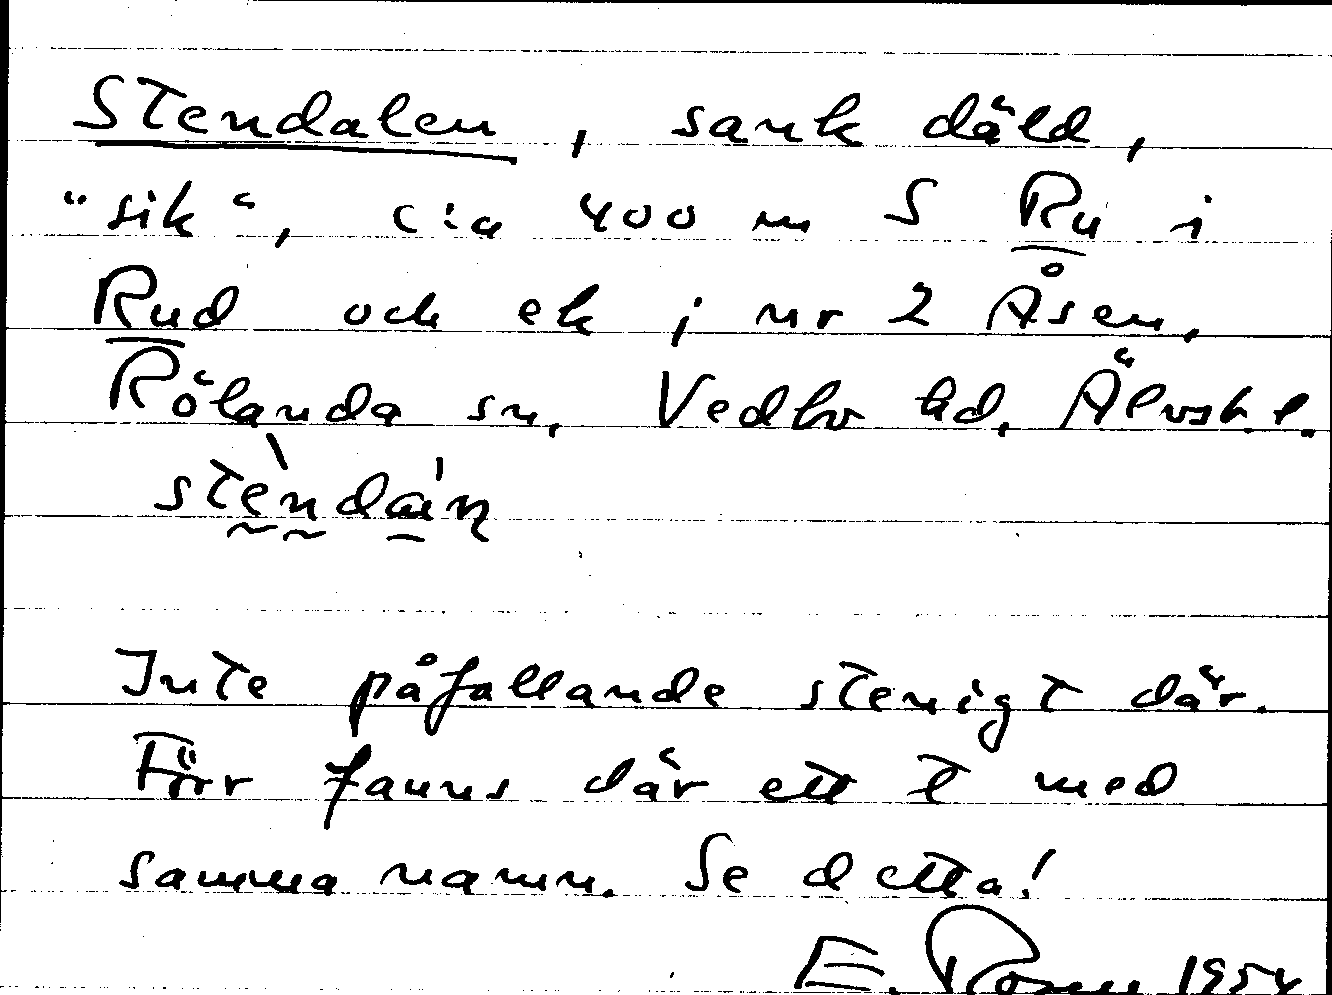 Stendalen, sank däld,
"sik", cia 400 m S Ru i
Rud och ek i nr 2 Åsen,
Rölanda sn, Vedbo hd, Älvsb. l.
stèndáin
Inte påfallande stenigt där.
Förr fanns där ett t med
samma namn. Se detta!
E. 1954